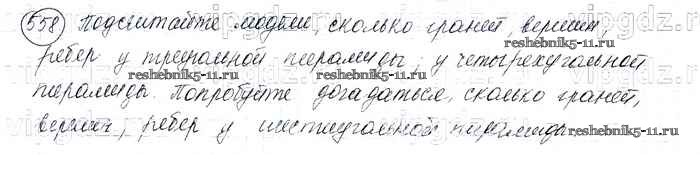 558 Подсчитайте модели, сколько граней, вершин,
ребер у треугольной пирамиды, у четырехугольной
пирамиды. Попробуйте догадаться, сколько граней,
вершин, ребер у шестиугольной пирамиды
reshebnik5-11.ru
reshebnik5-11.ru
reshebnik5-11.ru
reshebnik5-11.ru
reshebnik5-11.ru